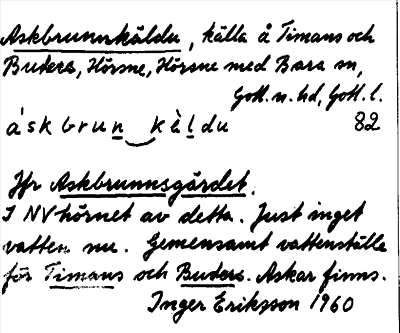 Askbrunnkäldu, källa å Timans och
Buders, Hörsne, Hörsne med Bara sn,
Gotl. n. hd, Gotl. l.
áskbrun kä̀ldu 82
Jfr Askbrunnsgärdet.
I NV hörnet av detta. Just inget
vatten nu. Gemensamt vattenställe
för Timans och Buders. Askar finns.
Inger Eriksson 1960